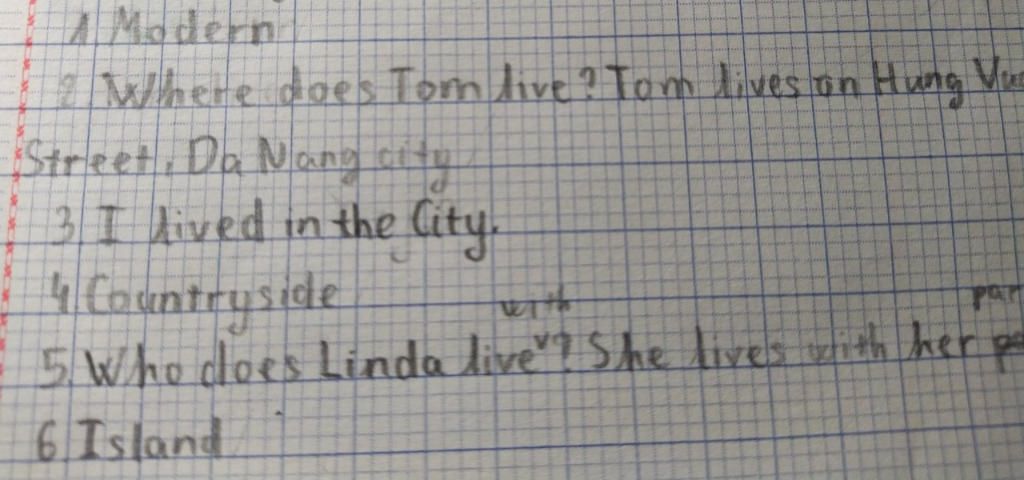 1 Modern
2 Where does Tom live? Tom lives on Hung
Street, Da Nang city
3 I lived in the City.
4 Countryside
5 Who does Linda live with? She lives with her
6 Island